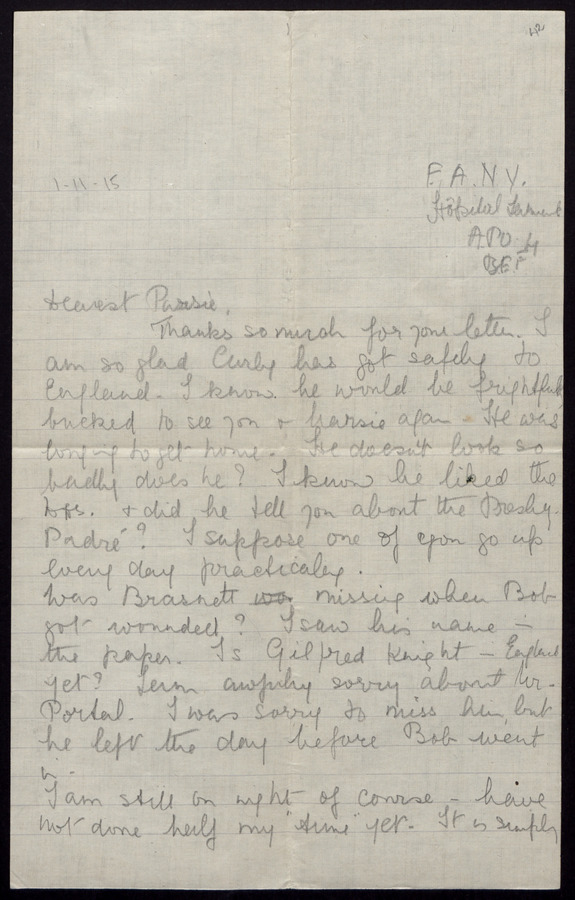 42
1-11-15
F.A.N.Y.
Hospital
A.P.O. 4
BEF
Dearest Parsie,
Thanks so much for your letter. I
am so glad Curly has got safely to
England - I know he would be frightfully
bucked to see you & again. He was
longing to get home. He doesn't look so
badly does he? I know he liked the
& did he tell you about the
Padré? I suppose one of you go up
every day practicaley.
Was Brasnett missing when Bob
got wounded? I saw his name -
the paper. Is Gilfred Knight - England
yet? I am awfully sorry about Mr.
Portal. I was sorry to miss him, but
he left the day before Bob went
in.
I am still on night of course - have
not done half my "time" yet. It is simply